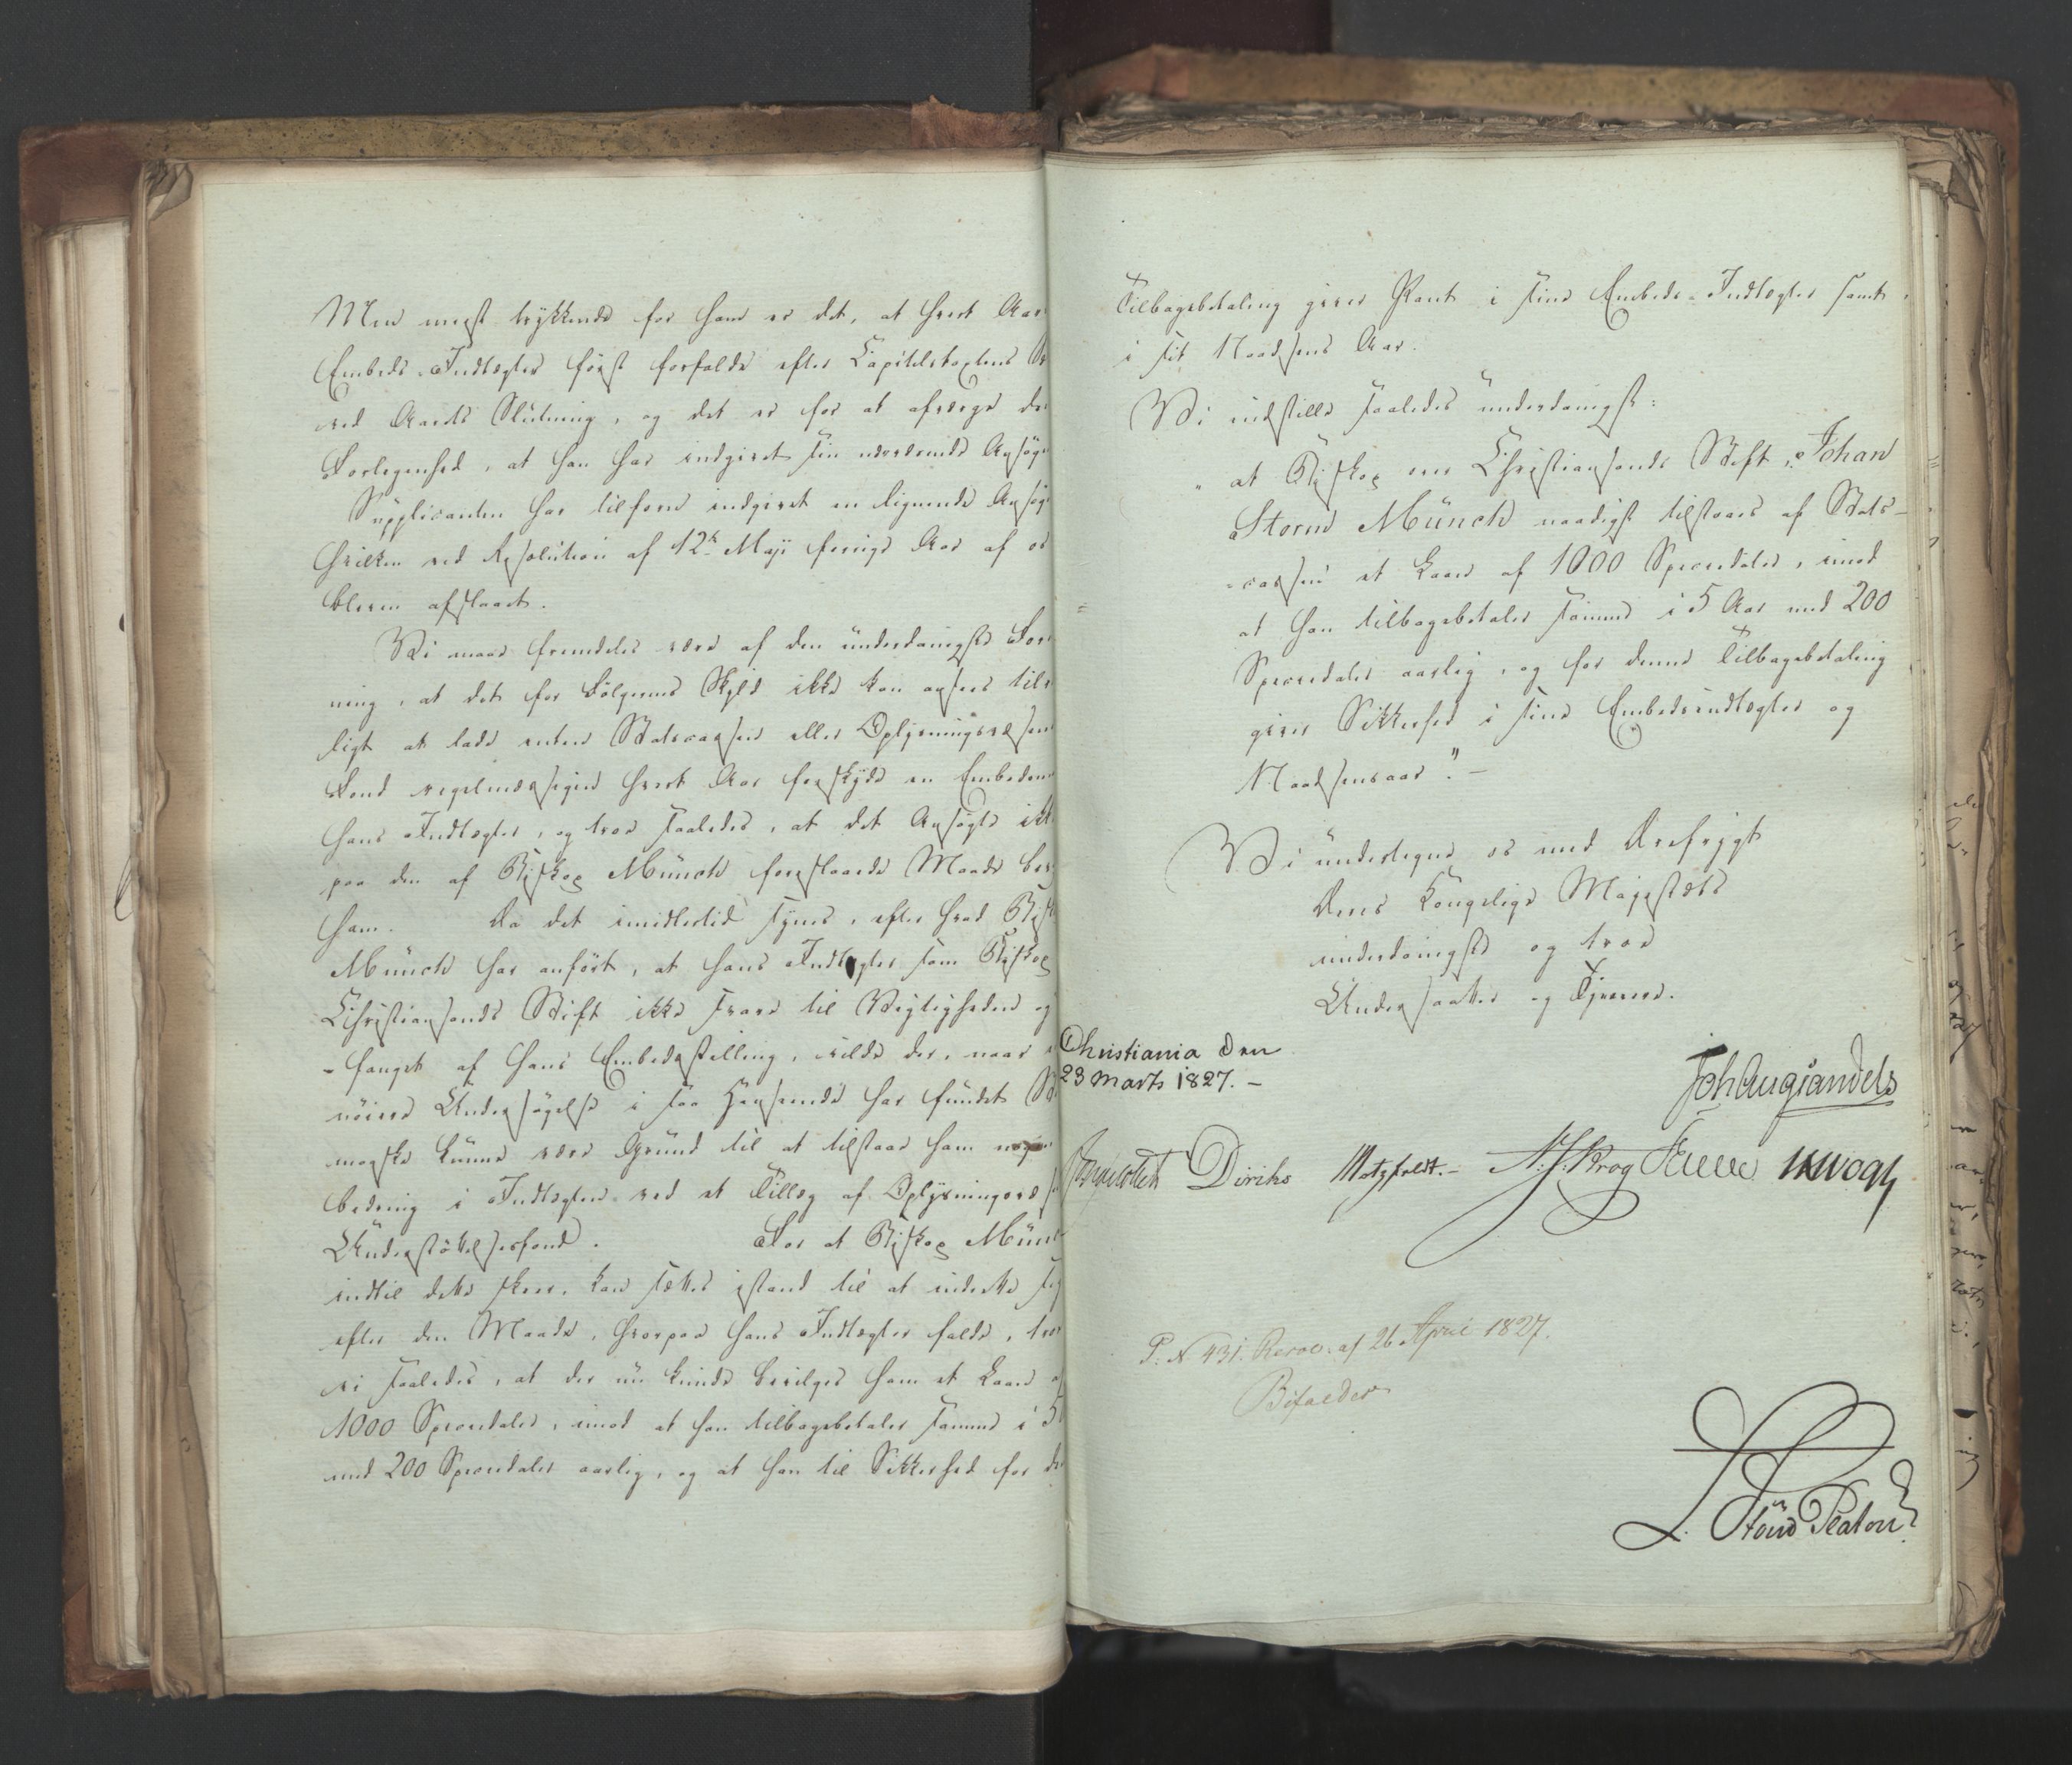 Men meest trykkende for ham er det, at hvert Aar
Embeds-Indtægter først forfalde efter Capitelstaxtens
ved Aarets Slutning, og det er for at afværge
Forlegenhed, at han har indgivet sin nærværende Ansøg
Supplicanten har tilforn indgivet en lignende Ansøg
hvilken ved Resolution af 12te Maji forrige Aar af os
bleven afslaaet.
Vi maae fremdeles være af den underdanigste For
ning, at det for Følgernes Skyld ikke kan ansees til
ligt at lade enten Statscassen eller Oplysningsvæsen
Fond regelmæssigen hvert Aar forskyde en Embedsm
hans Indtægter, og troe saaledes, at det Ansøgte ikk
paa den af Biskop Münch foreslaaede Maade bev
ham. Da det imidlertid synes, efter hvad Bisk
Münch har anført, at hans Indtægter som Biskop
Christiansands Stift ikke svare til Vigtigheden og
-fanget af hans Embedsstilling, vilde der, naar
nöiere Undersøgelse i saa Henseende har fundet St
maaske kunne være Grund til at tilstaae ham nogen
bedring i Indtægten ved et Tillæg af Oplysningsvæs
Understöttelsesfond. For at Biskop Münc
indtil dette skeer, kan sættes istand til at indrette sig
efter den Maade, hvorpaa hans Indtægter falde, troe
vi saaledes, at der nu kunde bevilges ham et Laan a
1000 Speciedaler, imod at han tilbagebetaler samme i 5
med 200 Speciedaler aarlig, og at han til Sikkerhed for de
Tilbagebetaling giver Pant i sine Embeds-Indtægter samt
i sit Naadsens Aar.
Vi indstille saaledes underdanigst:
"at Biskop over Christiansands Stift, Johan
Storm Münch naadigst tilstaaes af Stats-
-cassen et Laan af 1000 Speciedaler, imod
at han tilbagebetaler samme i 5 Aar med 200
Speciedaler aarlig, og for denne Tilbagebetaling
giver Sikkerhed i sine Embedsindtægter og
Naadsensaar".-
Vi undertegne os med Ærefrygt
Deres Kongelige Majestæts
underdanigste og troe
Undersaatter og Tjenere.
Christiania den
23 Marts 1827.-
Joh Aug Sandels
Diriks Motzfeldt.- N. J. Krog JHVogt
P: N 431. Resol: af 26 April 1827.
Bifaldes